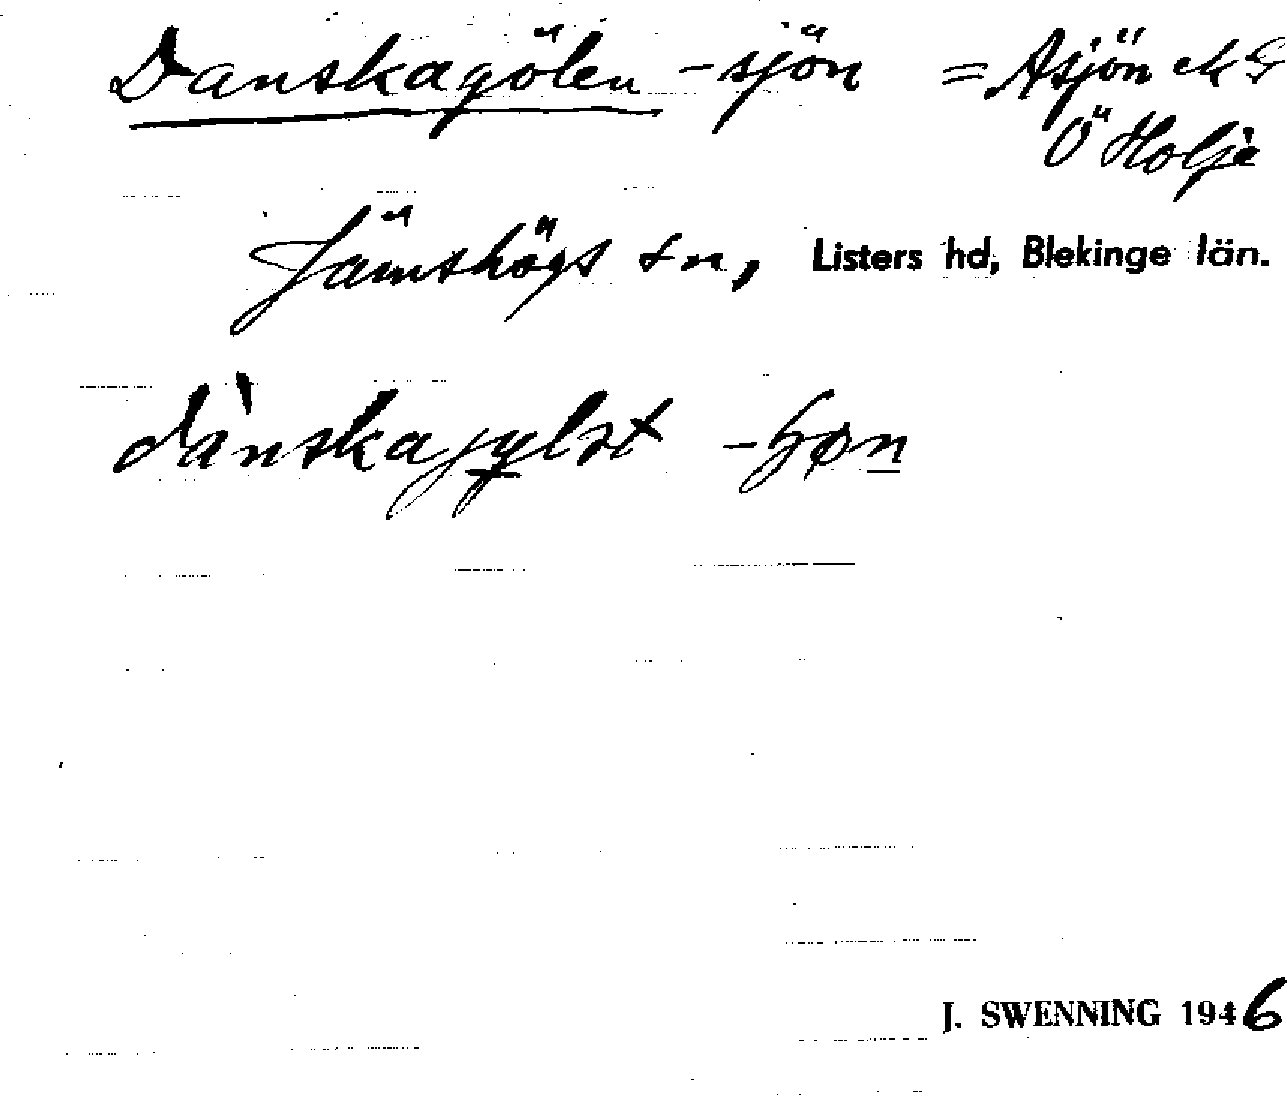 Danskagölen -sjön = Asjön ek G
Ö Holje
Jämshögs sn, Listers hd, Blekinge län.
-søn
J. SWENNING 1946